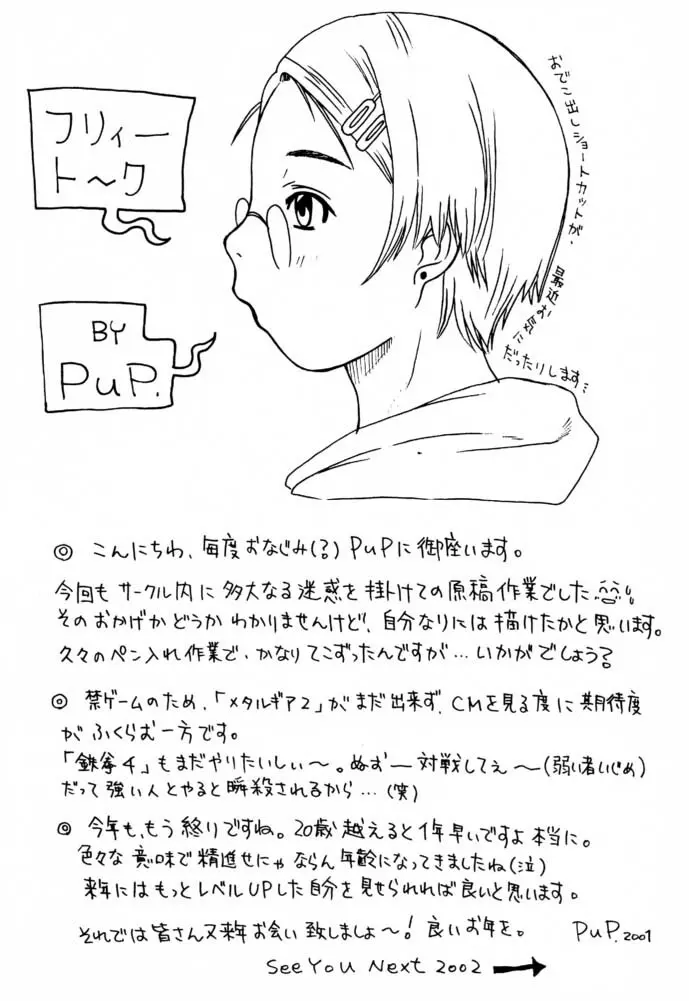 フリィー
ト～ク
BY
PuP.
おでこ出しショートカットが、
最近お気に
だったりします…
◎ こんにちわ、毎度おなじみ(?) PuPに御座います。
今回も サークル内に 多大なる迷惑を 掛けての原稿作業でした
そのおかげかどうか わかりませんけど、自分なりには描けたかと思います。
久々のペン入れ作業で、かなりてこずったんですが…いかがでしょう?
◎ 禁ゲームのため、「メタルギア2」がまだ出来ず、CMを見る度に期待度
が ふくらむ一方です。
「鉄拳4」もまだやりたいしぃ～。ぬおー対戦してぇ～(弱い者いじめ)
だって強い人とやると瞬殺されるから…(笑)
◎ 今年も、もう終りですね。20歳越えると1年早いですよ本当に。
色々な意味で精進せにゃならん年齢になってきましたね(泣)
来年にはもっとレベルUPした自分を見せられれば良いと思います。
それでは皆さん又来年お会い致しましょ～! 良いお年を。 PuP. 2001
See You Next 2002 →